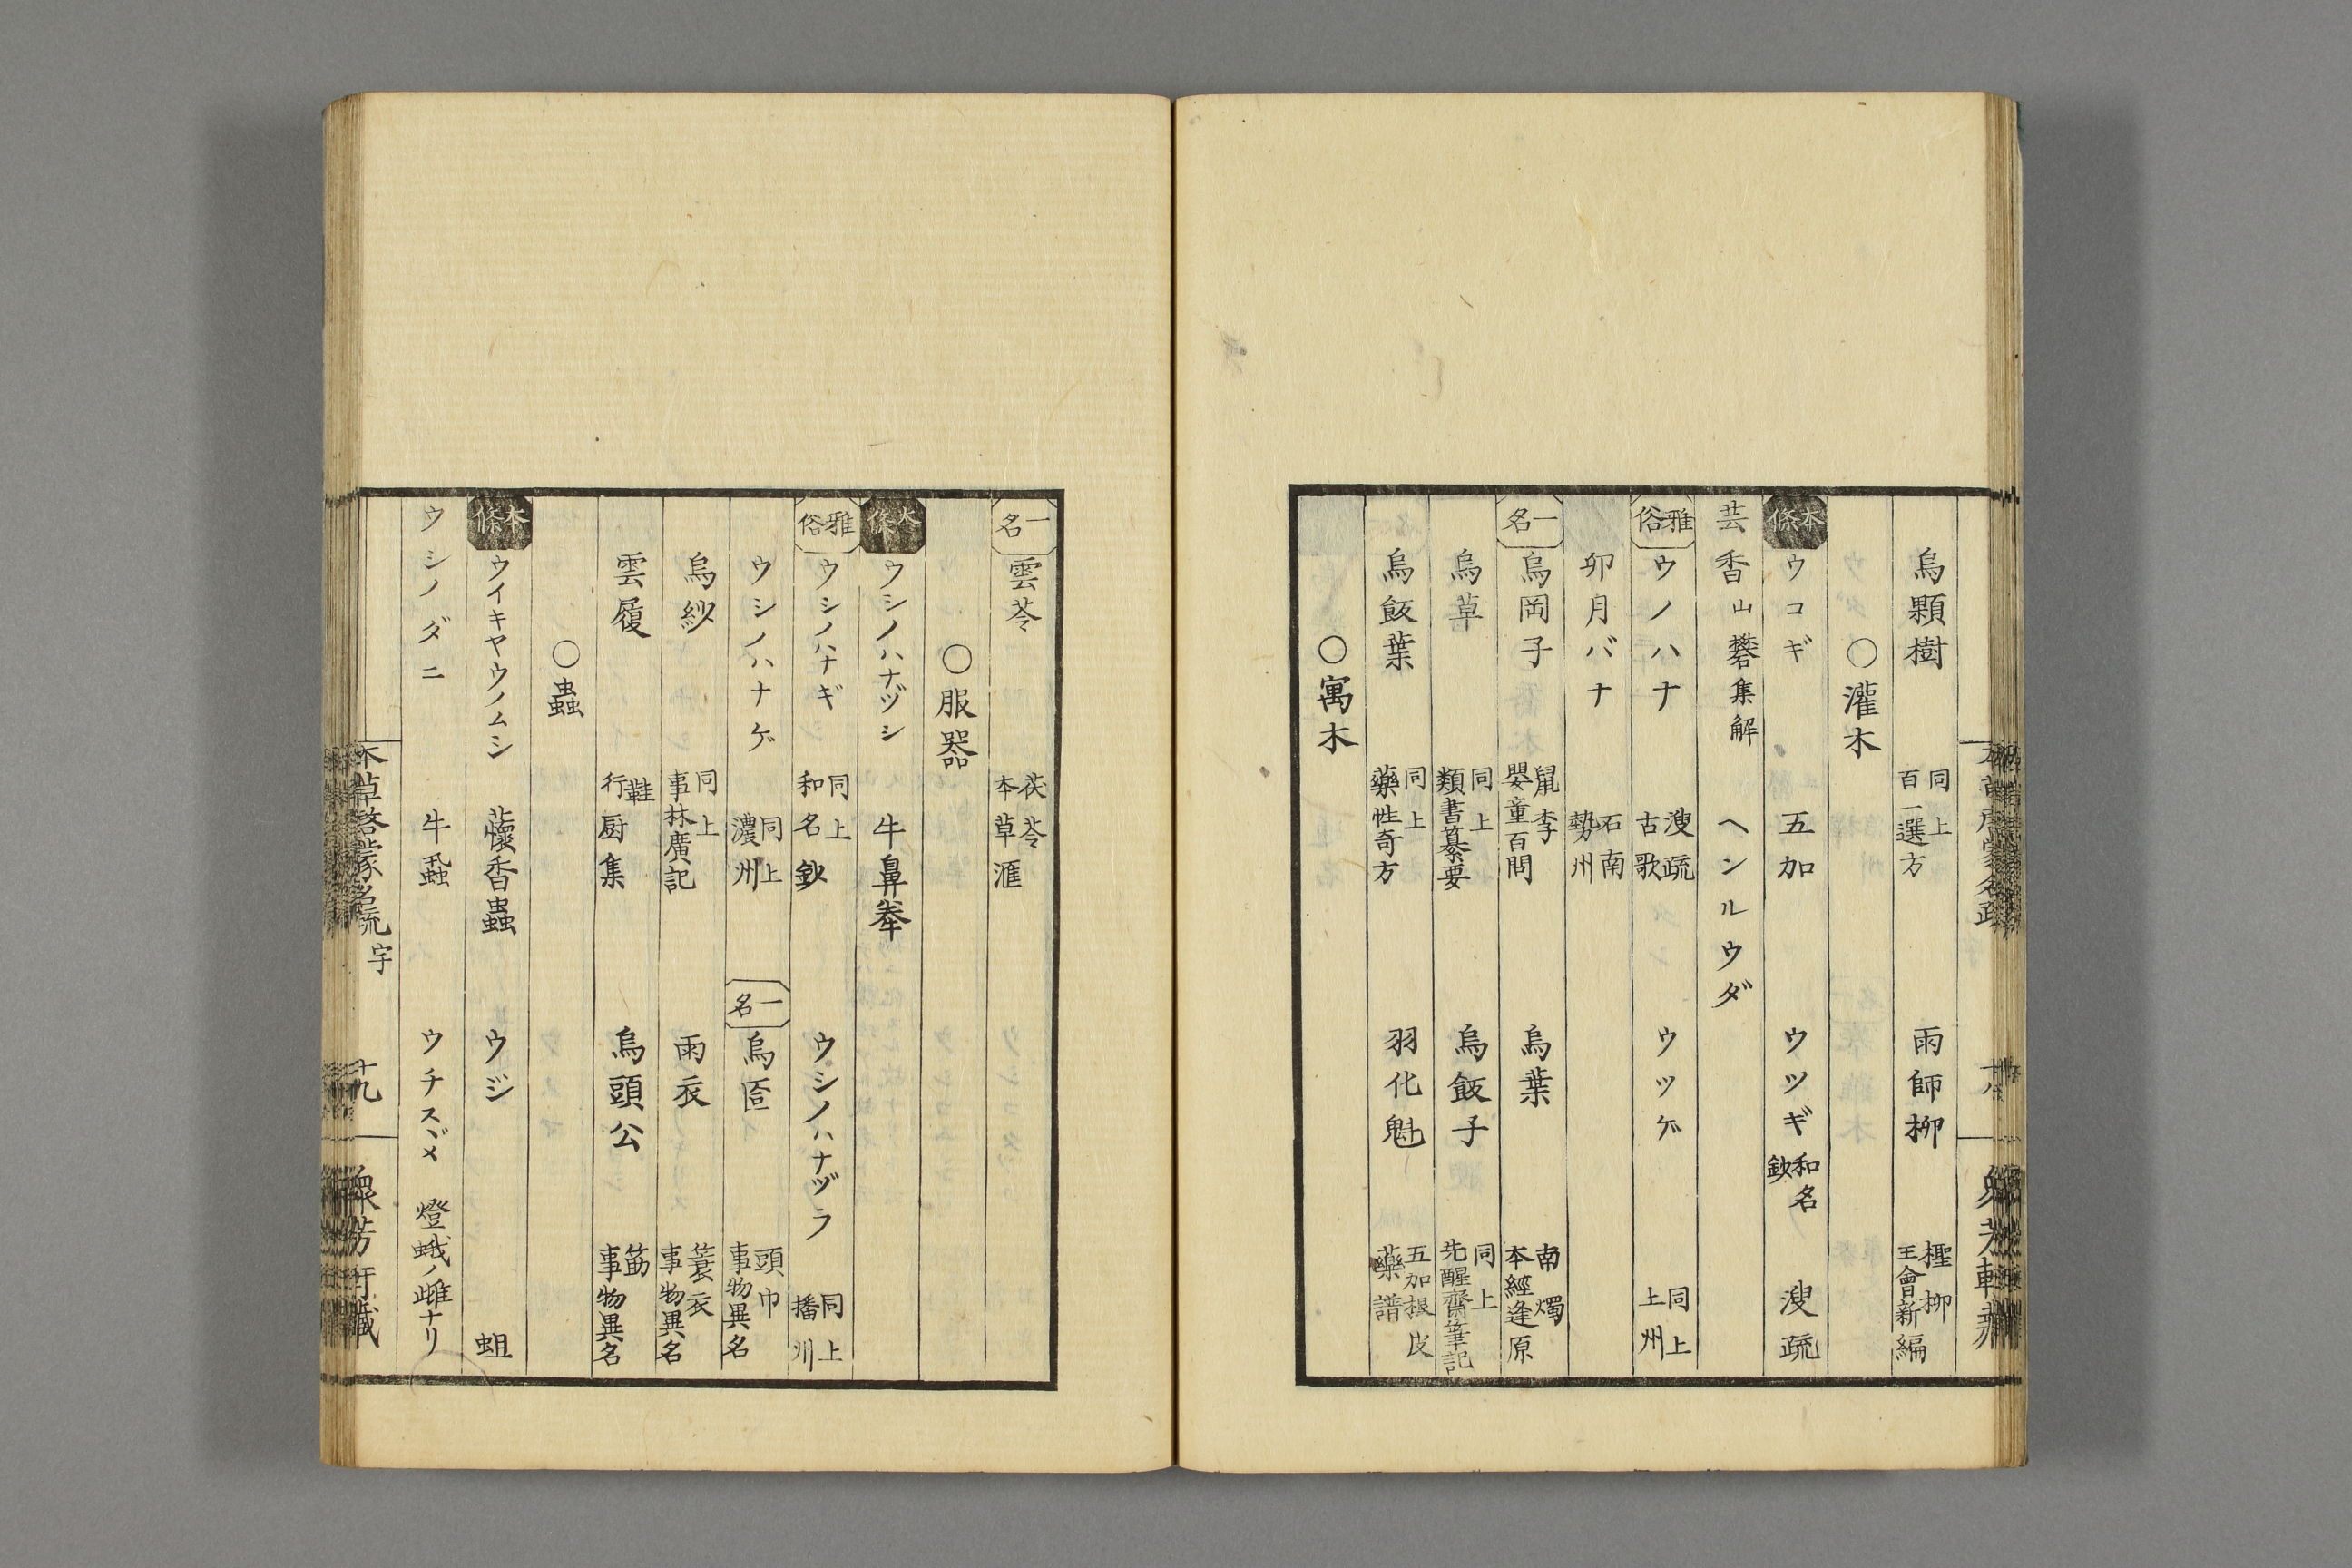 烏顆樹 同上 百一選方 雨師柳 檉柳 王會新編
○灌木
本條 ウコギ 五加 ウツギ 和名鈔 溲疏
芸香 山礬集解 ヘンルウダ
雅俗 ウノハナ 溲疏 古歌 ウツゲ 同上 上州
卯月バナ 石南 勢州
一名 烏岡子 鼠李 嬰童百問 烏葉 南燭 本經逢原
烏草 同上 類書纂要 烏飯子 同上 先醒齋筆記
烏飯葉 同上 藥性奇方 羽化魁 五加根皮 藥譜
○寓木
一名 雲苓 茯苓 本草滙
○服器
本條 ウシノハナヅシ 牛鼻牶
雅俗 ウシノハナギ 同上 和名鈔 ウシノハナヅラ 同上 播州
ウシノハナゲ 同上 濃州 一名 烏匼 頭巾 事物異名
烏紗 同上 事林廣記 雨衣 簑衣 事物異名
雲履 鞋 行厨集 烏頭公 筯 事物異名
○蟲
本條 ウイキヤウノムシ 蘹香蟲 ウジ 蛆
ウシノダニ 牛蝨 ウチスヾメ 燈蛾ノ雌ナリ
本草啓蒙名疏 宇 十九 衆芳軒藏